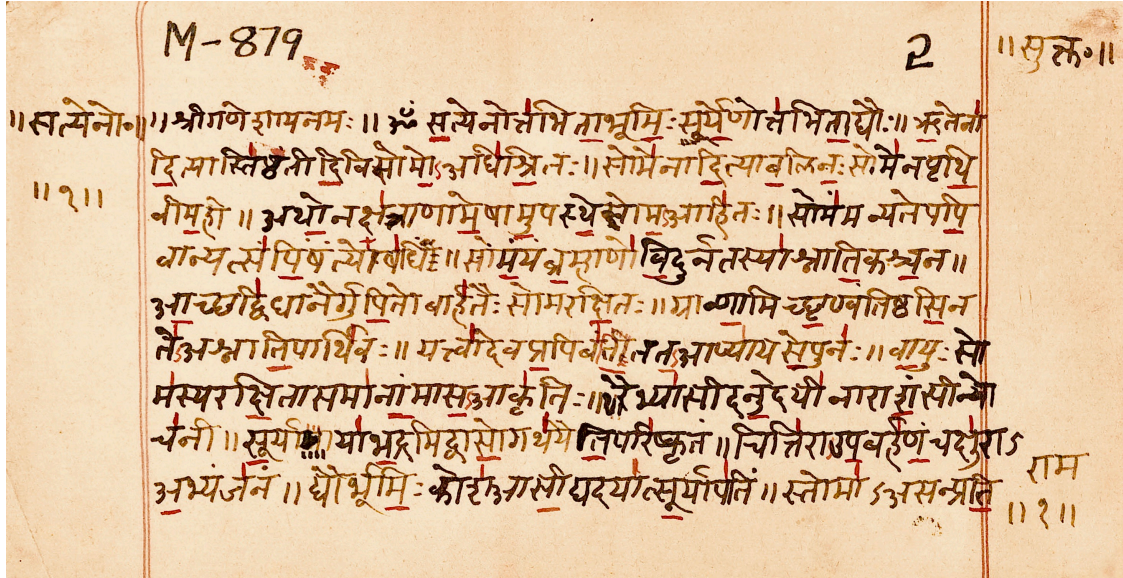 M-879
2
॥सुक्त॰॥
॥सत्येनो॰॥
॥श्रीगणेशायनमः॥ॐ सत्येनोत्तभिताभूमिः सूर्येणोत्तभिताद्यौः॥ऋतेना
दित्यास्तिष्ठंतीदिविसोमोऽअधिश्रितः॥सोमेनादित्याबलिनः सोमेनपृथि
॥१॥
वीमही॥अथोनक्षत्राणामेषामुपस्थेसोमआहितः॥सोमंमन्यतेपपि
वान्यत्संपिंषंत्योषधिं॥सोमंयंब्रम्हाणोविदुर्नतस्याश्नातिकश्चन॥
आच्छद्विधानैर्गुपितोबार्हतैः सोमरक्षितः॥ग्राव्णामिच्छृण्वंतिष्ठसिन
तेऽअश्नातिपार्थिवः॥यत्त्वादेवप्रपिबंतिततआप्यायसेपुनः॥वायुः सो
मस्यरक्षितासमानांमासआकृतिः॥रैभ्यासीदनुदेयीनाराशंसीन्यो
चनी॥सूर्याया भद्रमिद्वासोगाथयैतिपरिष्कृतं॥चित्तिराउपबर्हणंचक्षुराऽ
अभ्यंजनं॥द्यौर्भूमिः कोशआसीद्यदयात्सूर्यापतिं॥स्तोमाऽअसन्प्रति
राम
॥१॥